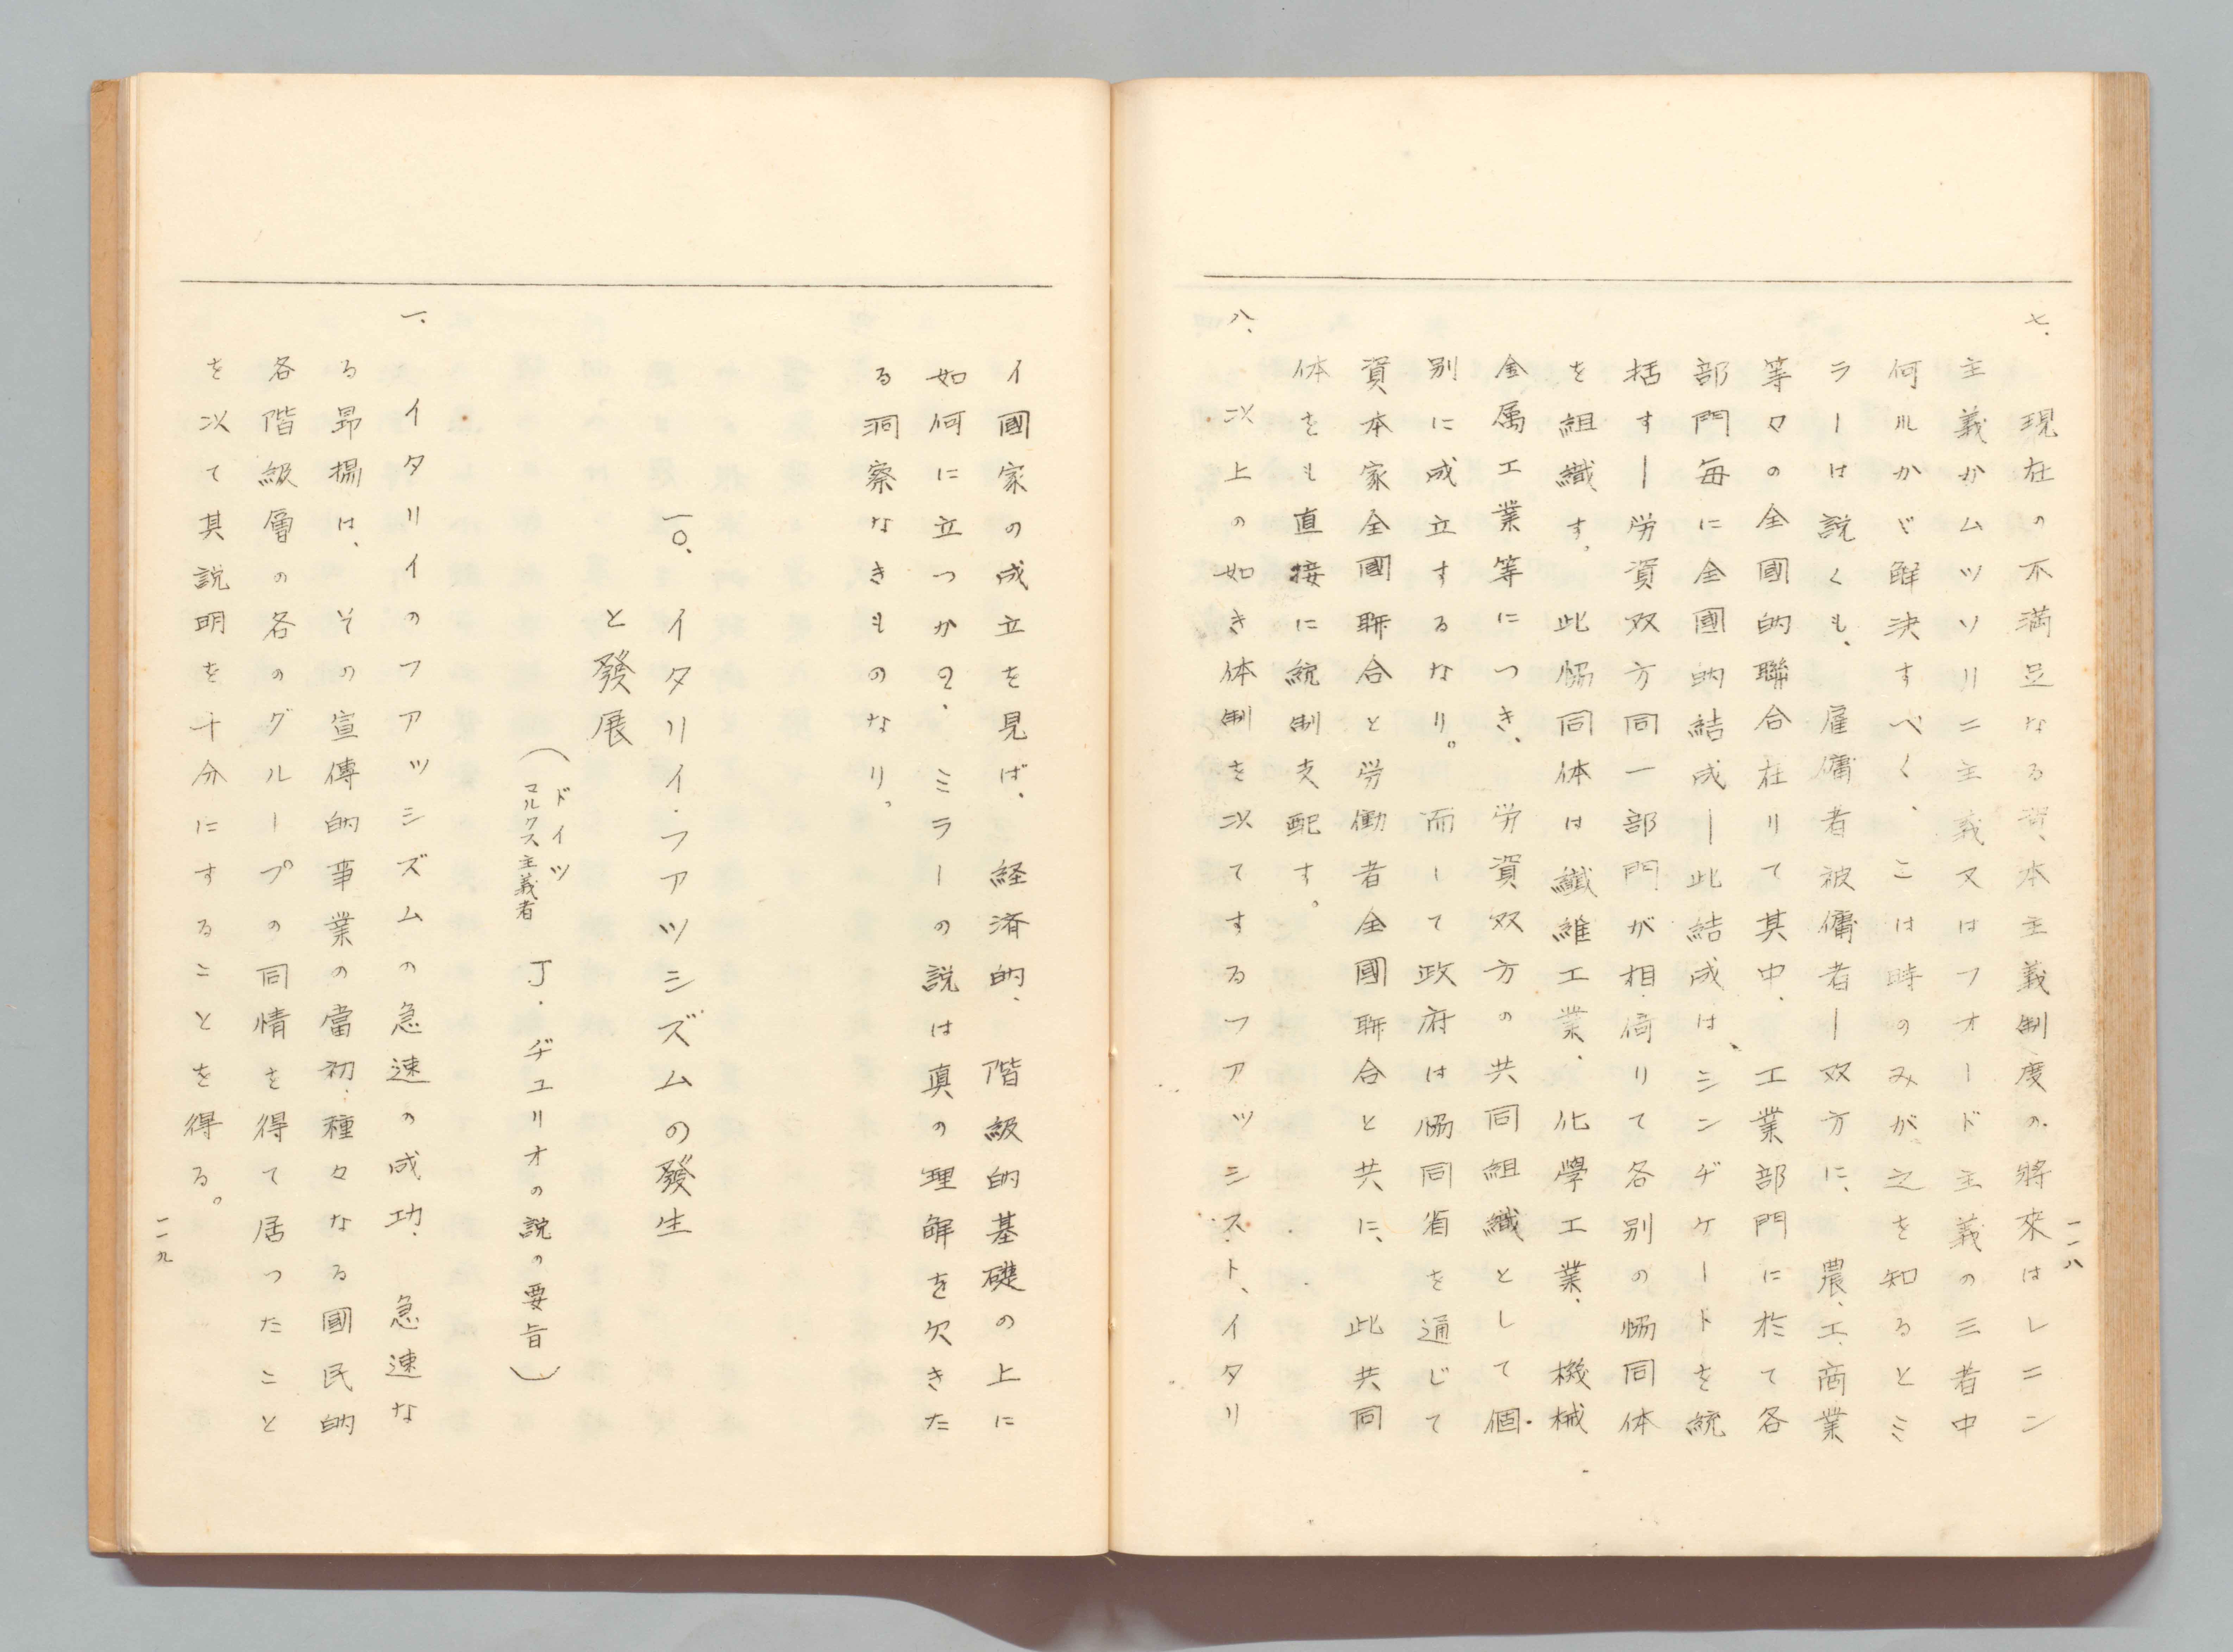 七、
現在の不満足なる資本主義制度の將來はレニン
主義かムツソリニ主義又はフオード主義の三者中
何ルかで解決すべく、こは時のみが之を知るとミ
ラーは説くも、雇傭者被傭者ー双方に、農、工、商業
等々の全國的聯合在りて其中、工業部門に於て各
部門毎に全國的結成ー此結成はシンヂケートを統
括すー労資双方同一部門が相倚りて各別の協同体
を組織す。此協同体は纖維工業、化學工業、機械
金属工業等につき、労資双方の共同組織として個
別に成立するなり。而して政府は協同省を通じて
資本家全國聯合と労働者全國聯合と共に、此共同
体をも直接に統制支配す。
八、
以上の如き体制を以てするフアツシスト、イタリ
一一八
イ國家の成立を見ば、経済的、階級的基礎の上に
如何に立つか?、ミラーの説は真の理解を欠きた
る洞察なきものなり。
一〇、イタリイ・フアツシズムの發生
と發展
(ドイツ
マルクス主義者 丁・ヂユリオの説の要旨)
一、
イタリイのフアツシズムの急速の成功、急速な
る昻揚は、その宣傳的事業の當初、種々なる國民的
各階級層の各のグループの同情を得て居つたこと
を以て其説明を十分にすることを得る。
一一九